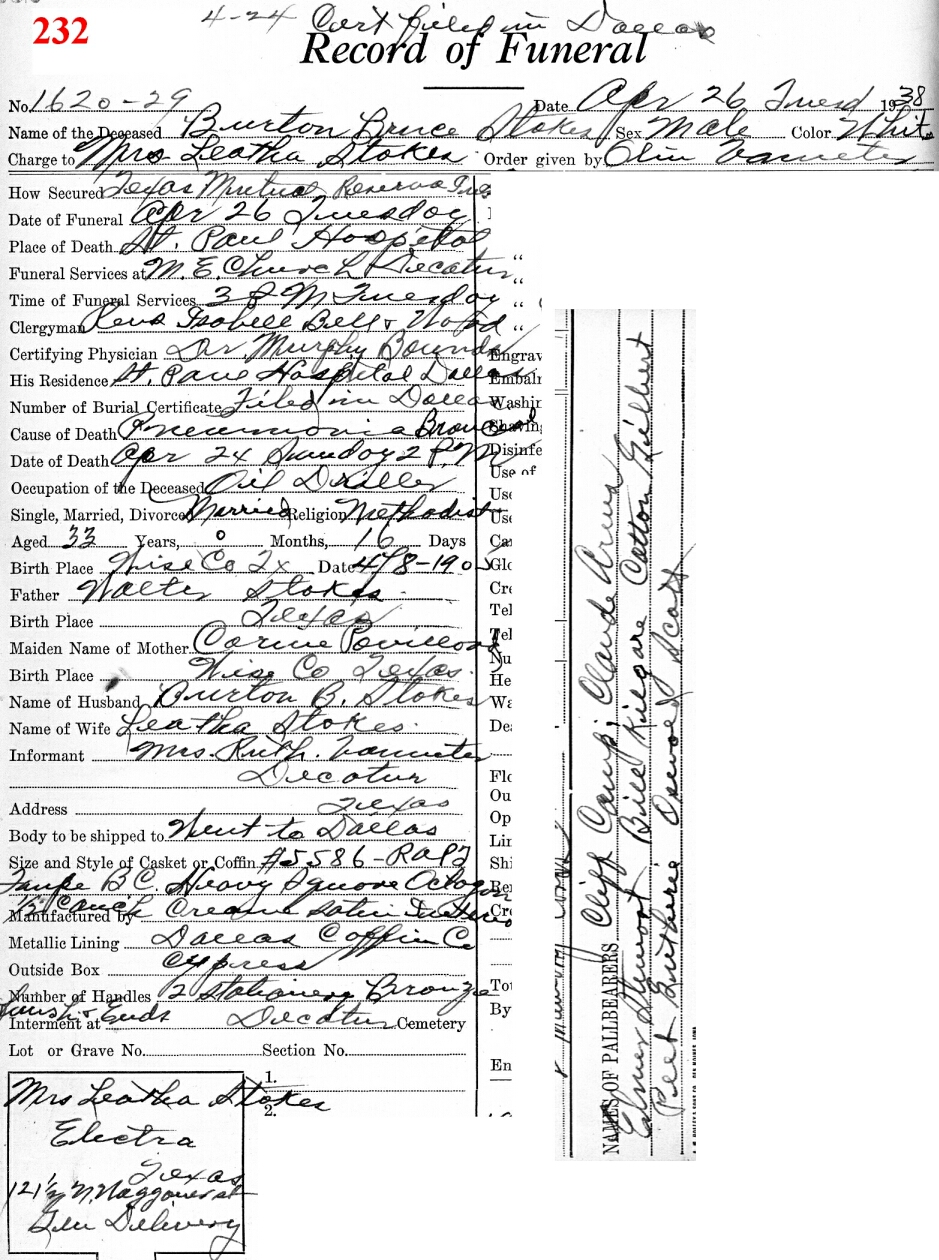 232
4-24 Cert filed in Dallas
Record of Funeral
No. 1620-29 Date Apr 26 Tuesd 1938
Name of the Deceased Burton Bruce Stokes Sex Male Color White
Charge to Mrs Leatha Stokes Order given by Olin Vanmeter
How Secured Texas Mutual Reserve Ins
Date of Funeral Apr 26 Tuesday
Place of Death St. Paul Hospital
Funeral Services at M. E. Church Decatur
Time of Funeral Services 3 P M Tuesday
Clergyman Revs Isabell Bell &
Certifying Physician Dr Murphy Bounds
His Residence St. Paul Hospital Dallas
Number of Burial Certificate Filed in Dallas
Cause of Death Pneumonia Broncal
Date of Death Apr 24 Sunday 2 P. M
Occupation of the Deceased Oil Driller
Single, Married, Divorced Married Religion Methodist
Aged 33 Years, 0 Months, 16 Days
Birth Place Wise Co Tx Date 4/8-190
Father Walter Stokes
Birth Place Texas
Maiden Name of Mother Corine
Birth Place Wise Co Texas
Name of Husband Burton B. Stokes
Name of Wife Leatha Stokes
Informant Mrs. Ruth Vanmeter
Decatur
Address Texas
Body to be shipped to Went to Dallas
Size and Style of Casket or Coffin #5586-
Taupe B C. Heavy Square Octagon
½ Couch Cream Satin
Manufactured by
Metallic Lining Dallas Coffin Co
Outside Box Cypress
Number of Handles 2 Stationery Bronze
Interment at & Ends Decatur Cemetery
Lot or Grave No. Section No.
1.
2.
Mrs Leatha Stokes
Electra
Texas
121½ N. Waggoner st
Gen Delivery
Engrav
Embalm
Washin
Shaving
Disinfe
Use of
Use
Use
Ca
Glo
Cre
Tel
Tel
Nu
He
Wa
Dea
Flo
Ou
Op
Lin
Shi
Re
Cro
Tot
By
En
NAMES OF PALLBEARERS Cliff Camp, Claude
Elmer Stewart Bill Kilgore Cotton Gilbert
Peet Guthrie Oswood Scott